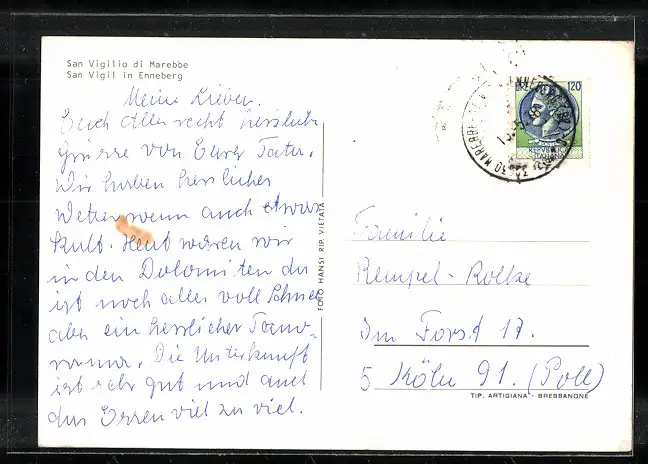 San Vigilio di Marebbe
San Vigil in Enneberg
Meine Lieben.
Euch allen recht herzliche
Grüsse von Eurem Vater.
Wir haben herrliches
Wetter wenn auch etwas
kalt. Heut waren wir
in den Dolomiten da
ist noch alles voll Schnee
aber ein herrlicher Pano-
rama. Die Unterkunft
ist sehr gut und auch
das Essen viel zu viel.
FOTO HANSI RIP. VIETATA
120
Familie
Rempel-Roltke
Im Forst 17.
5 Köln 91. (Poll)
TIP. ARTIGIANA - BRESSANONE